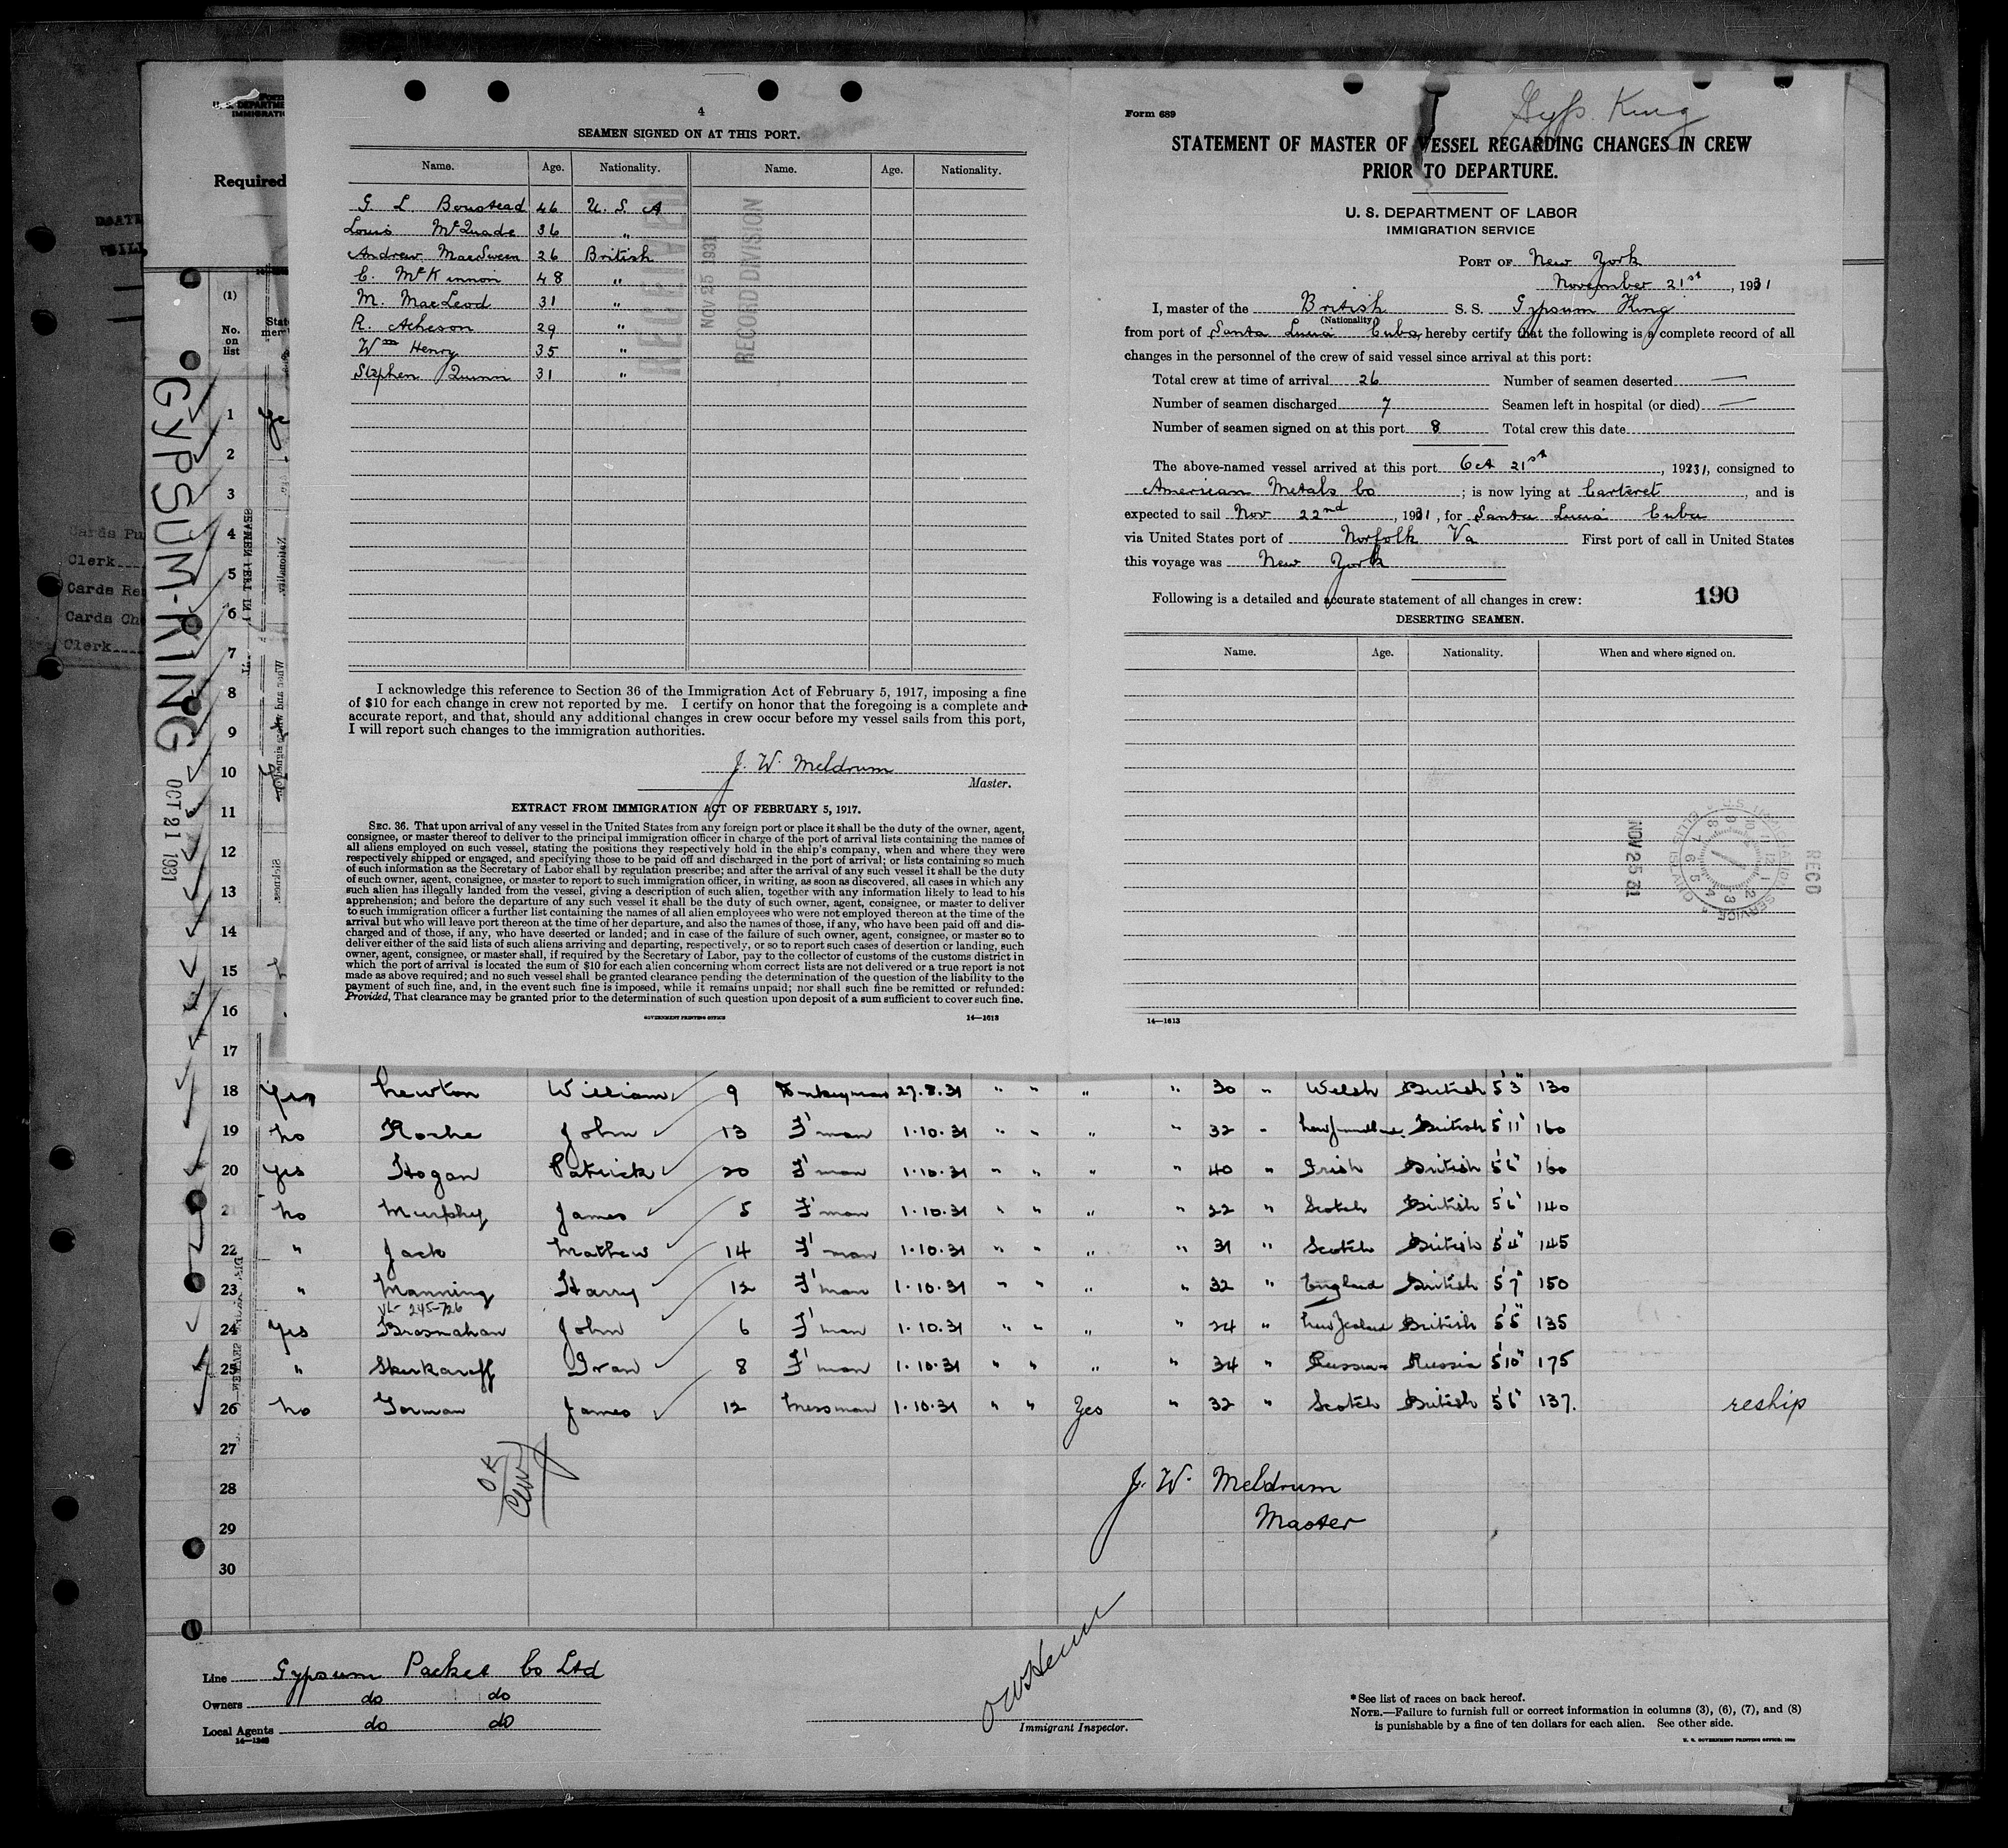 4
SEAMEN SIGNED ON AT THIS PORT.
Name. Age. Nationality. Name. Age. Nationality.
G. L. Boustead 46 U. S. A
Louis McQuade 36 "
Andrew MacSween 26 British
C. McKinnon 48 "
M. MacLeod 31 "
R. Acheson 29 "
Wm Henry 35 "
Stephen Quinn 31 "
RECEIVED
NOV 25 1931
RECORD DIVISION
I acknowledge this reference to Section 36 of the Immigration Act of February 5, 1917, imposing a fine
of $10 for each change in crew not reported by me. I certify on honor that the foregoing is a complete and
accurate report, and that, should any additional changes in crew occur before my vessel sails from this port,
I will report such changes to the immigration authorities.
J. W. Meldrum
Master.
EXTRACT FROM IMMIGRATION ACT OF FEBRUARY 5, 1917.
SEC. 36. That upon arrival of any vessel in the United States from any foreign port or place it shall be the duty of the owner, agent,
consignee, or master thereof to deliver to the principal immigration officer in charge of the port of arrival lists containing the names of
all aliens employed on such vessel, stating the positions they respectively hold in the ship's company, when and where they were
respectively shipped or engaged, and specifying those to be paid off and discharged in the port of arrival; or lists containing so much
of such information as the Secretary of Labor shall by regulation prescribe; and after the arrival of any such vessel it shall be the duty
of such owner, agent, consignee, or master to report to such immigration officer, in writing, as soon as discovered, all cases in which any
such alien has illegally landed from the vessel, giving a description of such alien, together with any information likely to lead to his
apprehension; and before the departure of any such vessel it shall be the duty of such owner, agent, consignee, or master to deliver
to such immigration officer a further list containing the names of all alien employees who were not employed thereon at the time of the
arrival but who will leave port thereon at the time of her departure, and also the names of those, if any, who have been paid off and dis-
charged and of those, if any, who have deserted or landed; and in case of the failure of such owner, agent, consignee, or master so to
deliver either of the said lists of such aliens arriving and departing, respectively, or so to report such cases of desertion or landing, such
owner, agent, consignee, or master shall, if required by the Secretary of Labor, pay to the collector of customs of the customs district in
which the port of arrival is located the sum of $10 for each alien concerning whom correct lists are not delivered or a true report is not
made as above required; and no such vessel shall be granted clearance pending the determination of the question of the liability to the
payment of such fine, and, in the event such fine is imposed, while it remains unpaid; nor shall such fine be remitted or refunded:
Provided, That clearance may be granted prior to the determination of such question upon deposit of a sum sufficient to cover such fine.
GOVERNMENT PRINTING OFFICE 14—1613
Gyps. King
Form 689
STATEMENT OF MASTER OF VESSEL REGARDING CHANGES IN CREW
PRIOR TO DEPARTURE.
U. S. DEPARTMENT OF LABOR
IMMIGRATION SERVICE
PORT OF New York
November 21st, 1931
I, master of the British S. S. Gypsum King
(Nationality)
from port of Santa Lucia Cuba, hereby certify that the following is a complete record of all
changes in the personnel of the crew of said vessel since arrival at this port:
Total crew at time of arrival 26 Number of seamen deserted —
Number of seamen discharged 7 Seamen left in hospital (or died) —
Number of seamen signed on at this port 8 Total crew this date
The above-named vessel arrived at this port Oct 21st, 1931, consigned to
American Metals Co ; is now lying at Carteret, and is
expected to sail Nov 22nd, 1931, for Santa Lucia Cuba
via United States port of Norfolk Va First port of call in United States
this voyage was New York
Following is a detailed and accurate statement of all changes in crew: 190
DESERTING SEAMEN.
Name. Age. Nationality. When and where signed on.
NOV 25 31
RECD
14—1613
Required
(1)
No. on list
GYPSUM-RING
OCT 21 1931
1
2
3
4
5
6
7
8
9
10
11
12
13
14
15
16
17
18 Yes Newton William 9 Donkeyman 27.8.31 " " " " 30 " Welsh British 5'3" 130
19 No Roche John 13 F'man 1.10.31 " " " " 32 " British 5'11" 160
20 Yes Hogan Patrick 20 F'man 1.10.31 " " " " 40 " Irish British 5'6" 160
21 No Murphy James 5 F'man 1.10.31 " " " " 22 " Scotch British 5'6" 140
22 " Jack Mathew 14 F'man 1.10.31 " " " " 31 " Scotch British 5'4" 145
23 " Manning Harry 12 F'man 1.10.31 " " " " 32 " England British 5'7" 150
VL- 245-726
24 Yes Brosnahan John 6 F'man 1.10.31 " " " " 24 " New Zealand British 5'5" 135
25 " Skurkareff Ivan 8 F'man 1.10.31 " " " " 34 " Russian Russia 5'10" 175
26 No Gorman James 12 Messman 1.10.31 " " Yes " 32 " Scotch British 5'6" 137. reship
27
28
29
30
OK
J. W. Meldrum
Master
Line Gypsum Packet Co Ltd
Owners do do
Local Agents do do
Immigrant Inspector.
*See list of races on back hereof.
NOTE.—Failure to furnish full or correct information in columns (3), (6), (7), and (8)
is punishable by a fine of ten dollars for each alien. See other side.